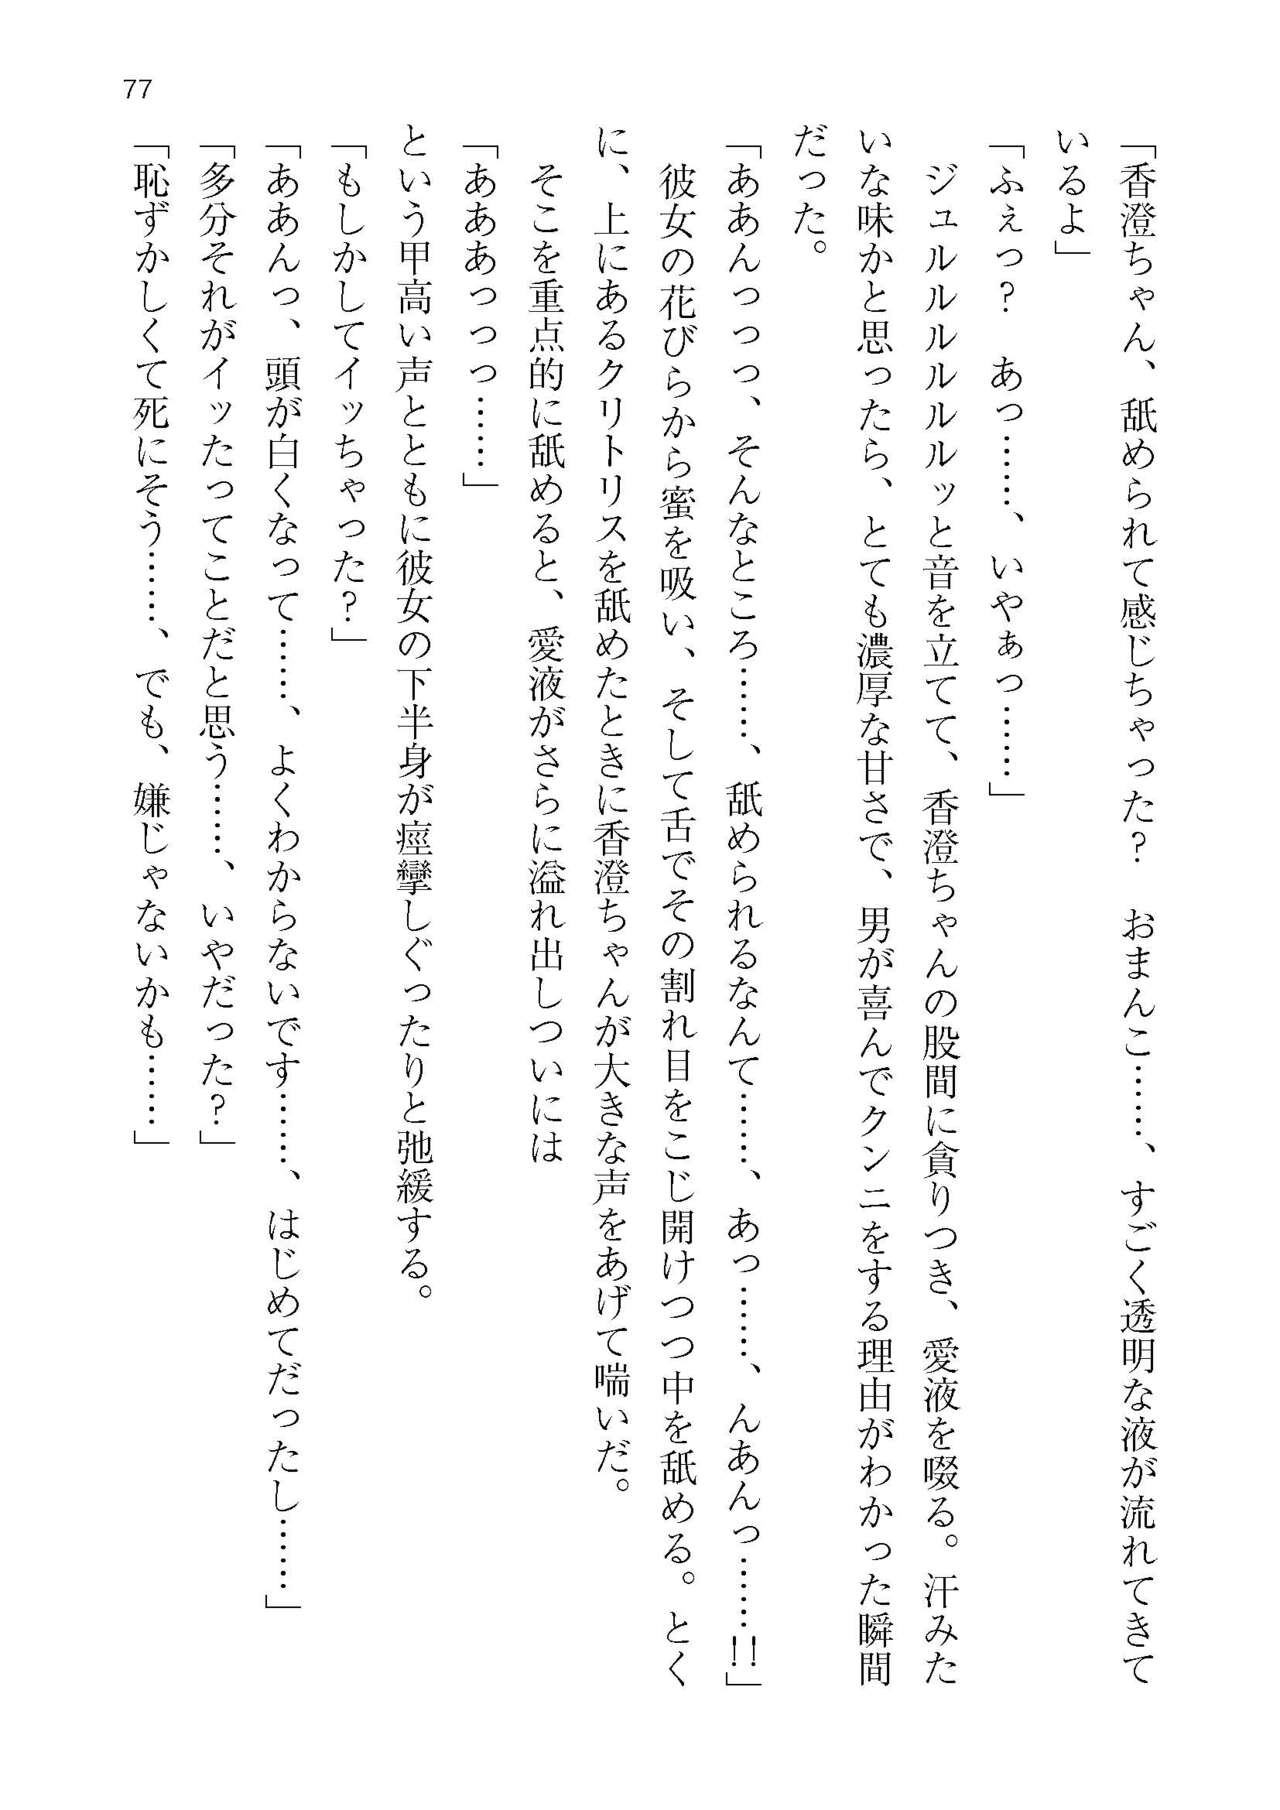 77
「香澄ちゃん、舐められて感じちゃった?　おまんこ……、すごく透明な液が流れてきて
いるよ」
「ふぇっ?　あっ……、いやぁっ……」
　ジュルルルルルルッと音を立てて、香澄ちゃんの股間に貪りつき、愛液を啜る。汗みた
いな味かと思ったら、とても濃厚な甘さで、男が喜んでクンニをする理由がわかった瞬間
だった。
「ああんっっっ、そんなところ……、舐められるなんて……、あっ……、んあんっ……!!」
　彼女の花びらから蜜を吸い、そして舌でその割れ目をこじ開けつつ中を舐める。とく
に、上にあるクリトリスを舐めたときに香澄ちゃんが大きな声をあげて喘いだ。
　そこを重点的に舐めると、愛液がさらに溢れ出しついには
「あああっっっ……」
という甲高い声とともに彼女の下半身が痙攣しぐったりと弛緩する。
「もしかしてイッちゃった?」
「ああんっ、頭が白くなって……、よくわからないです……、はじめてだったし……」
「多分それがイッたってことだと思う……、いやだった?」
「恥ずかしくて死にそう……、でも、嫌じゃないかも……」